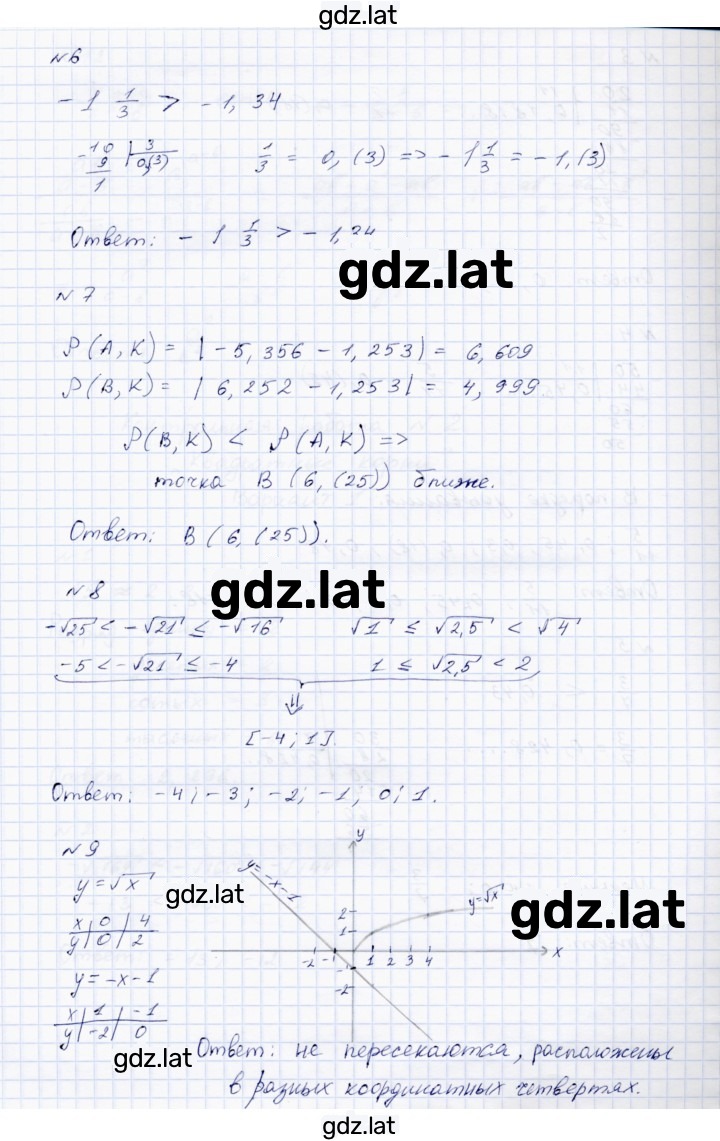 gdz.lat
№6
- 1 1/3 > - 1, 34
-10 | 3
9 0,(3)
1
1/3 = 0, (3) => - 1 1/3 = - 1, (3)
Ответ: - 1 1/3 > - 1,34
gdz.lat
№7
ρ(A, K) = |-5, 356 - 1, 253| = 6, 609
ρ(B, K) = |6, 252 - 1, 253| = 4, 999
ρ(B, K) < ρ(A, K) =>
точка B (6, (25)) ближе.
Ответ: B (6, (25)).
№8
gdz.lat
-√25 < -√21 ≤ -√16 √1 ≤ √2,5 < √4
-5 < -√21 ≤ -4 1 ≤ √2,5 < 2
⇓
[-4; 1].
Ответ: -4; -3; -2; -1; 0; 1.
№9
y = √x
gdz.lat
x | 0 | 4
y | 0 | 2
y = -x - 1
x | 1 | -1
y | -2 | 0
y
y=-x-1
y=√x
gdz.lat
2
1
-2 -1 1 2 3 4 x
-1
-2
gdz.lat
Ответ: не пересекаются, расположены
в разных координатных четвертях.
gdz.lat